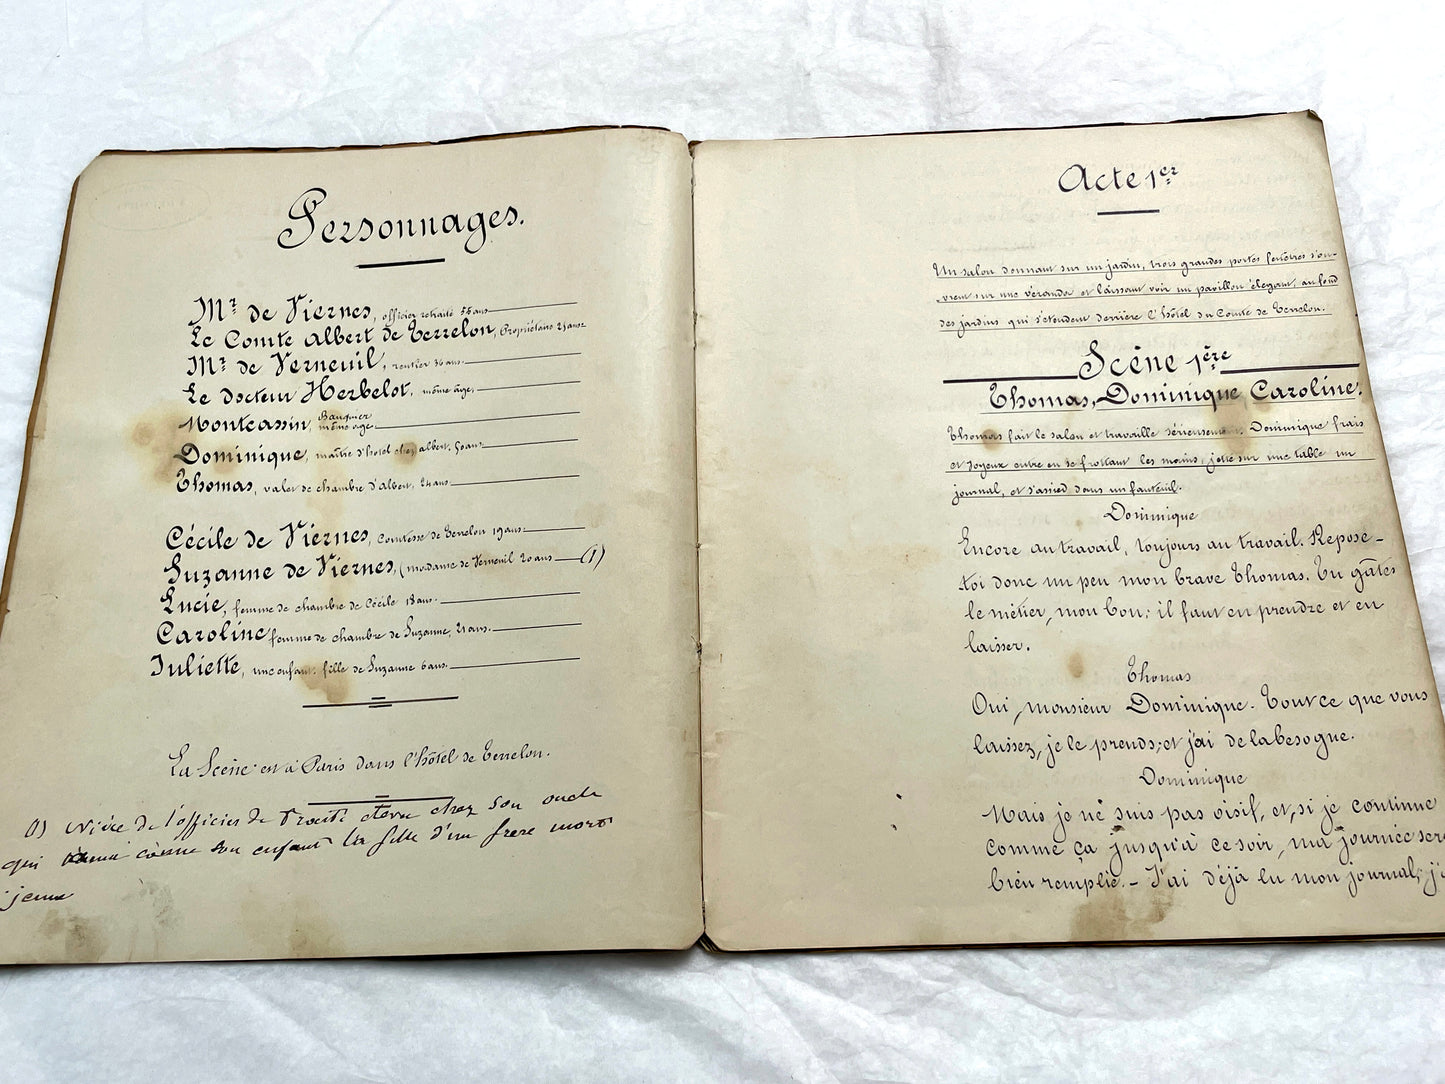 Personnages.
Mr de Viernes, officier retraité 56 ans
Le Comte Albert de Terrelon, Propriétaire 21 ans
Mr de Verneuil, rentier 36 ans.
Le docteur Herbelot, même âge.
Montcassin, Banquier même age.
Dominique, maître d'hôtel chez albert. 50 ans
Thomas, valet de chambre d'Albert, 24 ans
Cécile de Viernes, Comtesse de Terrelon 19 ans
Suzanne de Viernes, (madame de Verneuil 20 ans (1)
Lucie, femme de chambre de Cécile 18 ans.
Caroline femme de chambre de Suzanne, 21 ans.
Juliette, une enfant. fille de Suzanne 6 ans.
La Scène est à Paris dans l'hôtel de Terrelon.
(1) Nièce de l'officier de chez son oncle
qui comme son enfant la fille d'un frere mort
jeune
Acte 1er
Un salon donnant sur un jardin, trois grandes portes fenêtres s'ou-
vrent sur une véranda et laissant voir un pavillon élegant, au fond
des jardins qui s'étendent derrière l'hôtel du Comte de Terrelon.
Scène 1ère
Thomas, Dominique, Caroline.
Thomas fait le salon et travaille sérieusement. Dominique frais
et joyeux entre en se frottant les mains, jette sur une table un
journal, et s'assied dans un fauteuil.
Dominique
Encore au travail, toujours au travail. Repose-
toi donc un peu mon brave Thomas. Tu gâtes
le métier, mon bon; il faut en prendre et en
laisser.
Thomas
Oui, monsieur Dominique. Tout ce que vous
laissez, je le prends; et j'ai de la besogne.
Dominique
Mais je ne suis pas oisif, et, si je continue
comme ça jusqu'à ce soir, ma journée sera
bien remplie. - J'ai déjà lu mon journal, j'